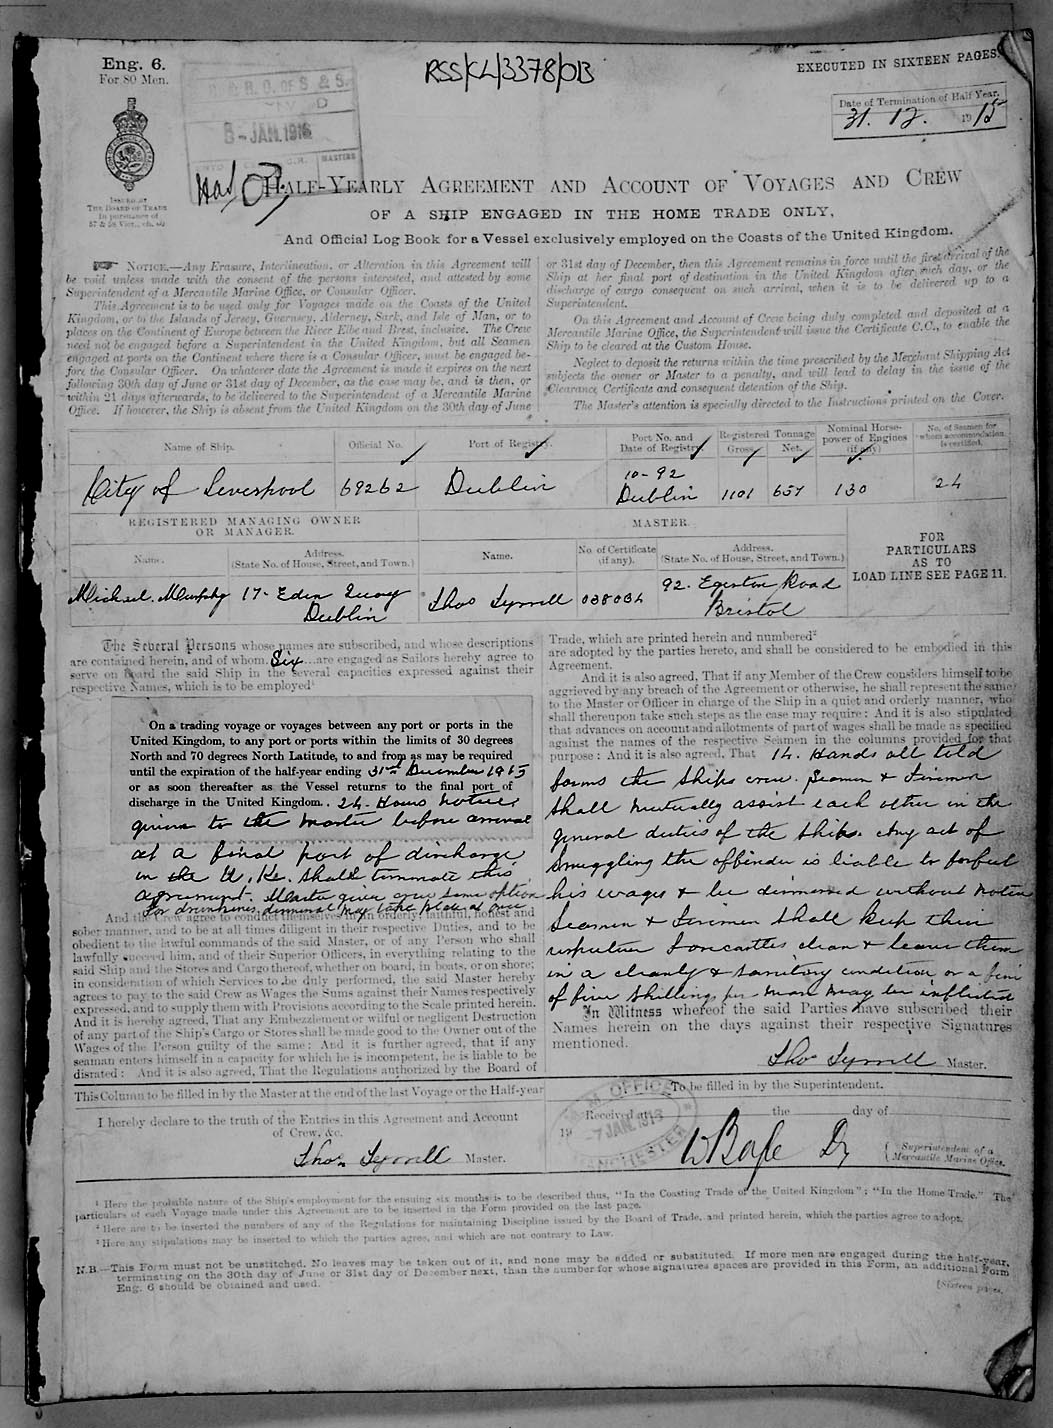 Eng. 6.
For 80 Men.
RSS/CL/3378/013
EXECUTED IN SIXTEEN PAGES.
Date of Termination of Half Year.
31. 12. 1915
8-JAN.1916
ISSUED BY
THE BOARD OF TRADE
In pursuance of
57 & 58 Vict., ch. 60
HALF-YEARLY AGREEMENT AND ACCOUNT OF VOYAGES AND CREW
OF A SHIP ENGAGED IN THE HOME TRADE ONLY,
And Official Log Book for a Vessel exclusively employed on the Coasts of the United Kingdom.
NOTICE.—Any Erasure, Interlineation, or Alteration in this Agreement will
be void unless made with the consent of the persons interested, and attested by some
Superintendent of a Mercantile Marine Office, or Consular Officer.
This Agreement is to be used only for Voyages made on the Coasts of the United
Kingdom, or to the Islands of Jersey, Guernsey, Alderney, Sark, and Isle of Man, or to
places on the Continent of Europe between the River Elbe and Brest, inclusive. The Crew
need not be engaged before a Superintendent in the United Kingdom, but all Seamen
engaged at ports on the Continent where there is a Consular Officer, must be engaged be-
fore the Consular Officer. On whatever date the Agreement is made it expires on the next
following 30th day of June or 31st day of December, as the case may be, and is then, or
within 21 days afterwards, to be delivered to the Superintendent of a Mercantile Marine
Office. If however, the Ship is absent from the United Kingdom on the 30th day of June
or 31st day of December, then this Agreement remains in force until the first arrival of the
Ship at her final port of destination in the United Kingdom after such day, or the
discharge of cargo consequent on such arrival, when it is to be delivered up to a
Superintendent.
On this Agreement and Account of Crew being duly completed and deposited at a
Mercantile Marine Office, the Superintendent will issue the Certificate C.C., to enable the
Ship to be cleared at the Custom House.
Neglect to deposit the returns within the time prescribed by the Merchant Shipping Act
subjects the owner or Master to a penalty, and will lead to delay in the issue of the
Clearance Certificate and consequent detention of the Ship.
The Master's attention is specially directed to the Instructions printed on the Cover.
Name of Ship. Official No. Port of Registry. Port No. and Date of Registry. Registered Tonnage Gross. Net. Nominal Horse-power of Engines (if any) No. of Seamen for whom accommodation is certified.
City of Liverpool 69262 Dublin 10-92 Dublin 1101 657 130 24
REGISTERED MANAGING OWNER OR MANAGER. MASTER. FOR PARTICULARS AS TO LOAD LINE SEE PAGE 11.
Name. Address. (State No. of House, Street, and Town.) Name. No. of Certificate (if any). Address. (State No. of House, Street, and Town.)
Michael Murphy 17 Eden Quay Dublin Thos Tyrrell 038034 92 Egerton Road Bristol
The Several Persons whose names are subscribed, and whose descriptions
are contained herein, and of whom Six are engaged as Sailors hereby agree to
serve on board the said Ship in the several capacities expressed against their
respective Names, which is to be employed¹
On a trading voyage or voyages between any port or ports in the
United Kingdom, to any port or ports within the limits of 30 degrees
North and 70 degrees North Latitude, to and from as may be required
until the expiration of the half-year ending 31st December 1915
or as soon thereafter as the Vessel returns to the final port of
discharge in the United Kingdom. 24 Hours notice
given to the master before arrival
at a final port of discharge
in the U. K. shall terminate this
agreement. Master gives crew same option
For drunkenness dismissal may take place at once
And the crew agree to conduct themselves in an orderly, faithful, honest and
sober manner, and to be at all times diligent in their respective Duties, and to be
obedient to the lawful commands of the said Master, or of any Person who shall
lawfully succeed him, and of their Superior Officers, in everything relating to the
said Ship and the Stores and Cargo thereof, whether on board, in boats, or on shore;
in consideration of which Services to be duly performed, the said Master hereby
agrees to pay to the said Crew as Wages the Sums against their Names respectively
expressed, and to supply them with Provisions according to the Scale printed herein.
And it is hereby agreed, That any Embezzlement or wilful or negligent Destruction
of any part of the Ship's Cargo or Stores shall be made good to the Owner out of the
Wages of the Person guilty of the same: And it is further agreed, that if any
seaman enters himself in a capacity for which he is incompetent, he is liable to be
disrated: And it is also agreed, That the Regulations authorized by the Board of
Trade, which are printed herein and numbered²
are adopted by the parties hereto, and shall be considered to be embodied in this
Agreement.
And it is also agreed, That if any Member of the Crew considers himself to be
aggrieved by any breach of the Agreement or otherwise, he shall represent the same
to the Master or Officer in charge of the Ship in a quiet and orderly manner, who
shall thereupon take such steps as the case may require: And it is also stipulated
that advances on account and allotments of part of wages shall be made as specified
against the names of the respective Seamen in the columns provided for that
purpose: And it is also agreed, That 14 Hands all told
forms the ships crew. Seamen & Firemen
shall mutually assist each other in the
general duties of the ship. Any act of
Smuggling the offender is liable to forfeit
his wages & be dismissed without notice
Seamen & Firemen shall keep their
respective Forecastles clean & leave them
in a cleanly & sanitory condition or a fine
of five shillings per man may be inflicted
In Witness whereof the said Parties have subscribed their
Names herein on the days against their respective Signatures
mentioned.
Thos Tyrrell Master.
This Column to be filled in by the Master at the end of the last Voyage or the Half-year
I hereby declare to the truth of the Entries in this Agreement and Account
of Crew, &c.
Thos Tyrrell Master.
To be filled in by the Superintendent.
Received at the day of
19
M.M. OFFICE
7 JAN. 1916
MANCHESTER
Superintendent of a
Mercantile Marine Office.
¹ Here the probable nature of the Ship's employment for the ensuing six months is to be described thus, "In the Coasting Trade of the United Kingdom"; "In the Home Trade." The
particulars of each Voyage made under this Agreement are to be inserted in the Form provided on the last page.
² Here are to be inserted the numbers of any of the Regulations for maintaining Discipline issued by the Board of Trade, and printed herein, which the parties agree to adopt.
³ Here any stipulations may be inserted to which the parties agree, and which are not contrary to Law.
N.B.—This Form must not be unstitched. No leaves may be taken out of it, and none may be added or substituted. If more men are engaged during the half-year,
terminating on the 30th day of June or 31st day of December next, than the number for whose signatures spaces are provided in this Form, an additional Form
Eng. 6 should be obtained and used.
(Sixteen pages.